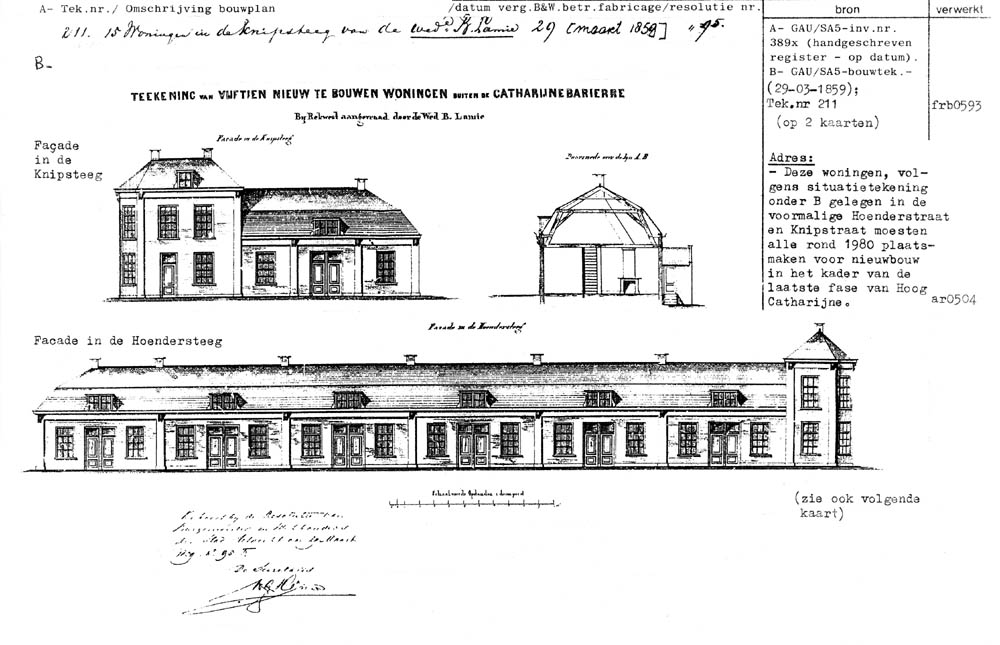 A- Tek.nr./ Omschrijving bouwplan /datum verg.B&W.betr.fabricage/resolutie nr.
211. 15 Woningen in de Knipsteeg van de wed.e B. Lamie 29 [maart 1859] 95.
B-
TEEKENING VAN VIJFTIEN NIEUW TE BOUWEN WONINGEN BUITEN DE CATHARIJNEBARIERRE
By Rekwest aangevraad door de Wed. B. Lamie
Façade
in de
Knipsteeg
Facade in de Knipsteeg
Doorsnede over de lyn A.B
bron
verwerkt
A- GAU/SA5-inv.nr.
389x (handgeschreven
register - op datum).
B- GAU/SA5-bouwtek.-
(29-03-1859);
Tek.nr 211
(op 2 kaarten)
frb0593
Adres:
- Deze woningen, vol-
gens situatietekening
onder B gelegen in de
voormalige Hoenderstraat
en Knipstraat moesten
alle rond 1980 plaats-
maken voor nieuwbouw
in het kader van de
laatste fase van Hoog
Catharijne.
ar0504
Facade in de Hoendersteeg
Facade in de Hoendersteeg
(zie ook volgende
kaart)
de Resolutie van
Burgemeester en Wethouders
De Secretaris